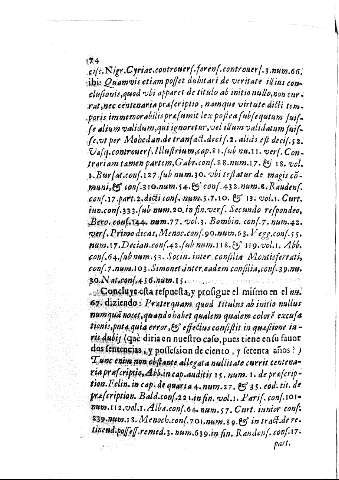 124
cisc. Nigr. Cyriac. controuers. forens. controuers. 3. num. 66.
ibi: Quamvis etiam posset dubitari de veritate illius con-
clusionis, quod vbi apparet de titulo ab initio nullo, non cur-
rat, nec centenaria præscriptio, namque virtute dicti tem-
poris immemorabilis præsumit lex postea subsequtum fuis-
se alium validum, qui ignoretur, vel illum validatum fuis-
se, vt per Mohedan. de transact. decis. 2. aliàs est decis. 52.
Vasq. controuers. Illustrium, cap. 81. sub nu. 11. vers. Con-
trariam tamen partem, Gabr. conf. 28. num. 17. & 18. vol.
1. Bursat. conf. 127. sub num. 30. vbi testatur de magis cõ-
muni, & conf. 310. num. 54. & conf. 432. num. 8. Raudens.
conf. 17. part. 2. dicti conf. num. 5. 7. 10. & 13. vol. 1. Curt.
iun. conf. 333. sub num. 20. in fin. vers. Secundo respondeo,
Bero. conf. 144. num. 77. vol. 3. Bombin. conf. 7. num. 42.
vers. Primo dicas, Menoc. conf. 90. num. 63. Vegg. conf. 55.
num. 17. Decian. conf. 42. sub num. 118. & 119. vol. 1. Abb.
conf. 64. sub num. 53. Socin. inter consilia Montisferrati,
conf. 7. num. 103. Simonet. inter eadem consilia, conf. 39. nu.
30. Nat. conf. 456. num. 15.
Concluye esta respuesta, y prosigue el mismo en el nu.
67. diziendo: Præterquam quod titulus ab initio nullus
numquã nocet, quando habet qualem qualem colorẽ excusa
tionis, puta, quia error, & effectus consistit in quæstione iu-
ris dubij (què diria en nuestro caso, pues tiene en su fauor
dos sentencias, y possession de ciento, y setenta años?)
Tunc enim non obstante allegata nullitate currit centena-
ria præscriptio, Abb. in cap. auditis 15. num. 1. de præscrip-
tion. Felin. in cap. de quarta 4. num. 27. & 35. eod. tit. de
præscription. Bald. conf. 221. in fin. vol. 1. Paris. conf. 101.
num. 112. vol. 1. Alba. conf. 64. num. 57. Curt. iunior conf.
239. num. 12. Menoch. conf. 701. num. 39. & in tract. de re-
tinend. possess. remed. 3. num. 639. in fin. Raudens. conf. 17.
part.